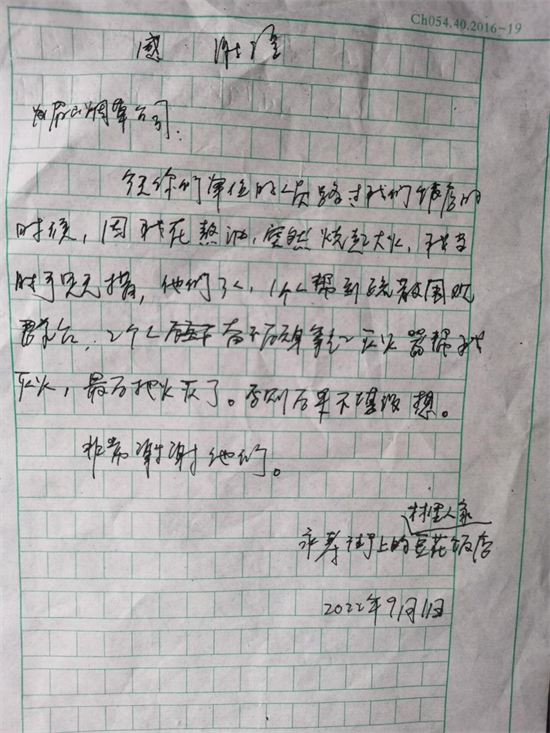 Ch054.40.2016-19
感 谢信
烟草公司:
今天你们单位的人员路过我们饭店的
时候，因我在熬油，突然烧起大火，我当
时手足无措，他们3人，1个人帮到疏散围观
群众，2个人奋不顾身拿起灭火器帮我
灭火，最后把火灭了。否则后果不堪设想。
非常谢谢他们。
村里人家
上的豆花饭店
2022年9月11日